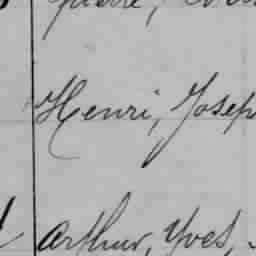 Henri, Josep
Arthur, Yves,